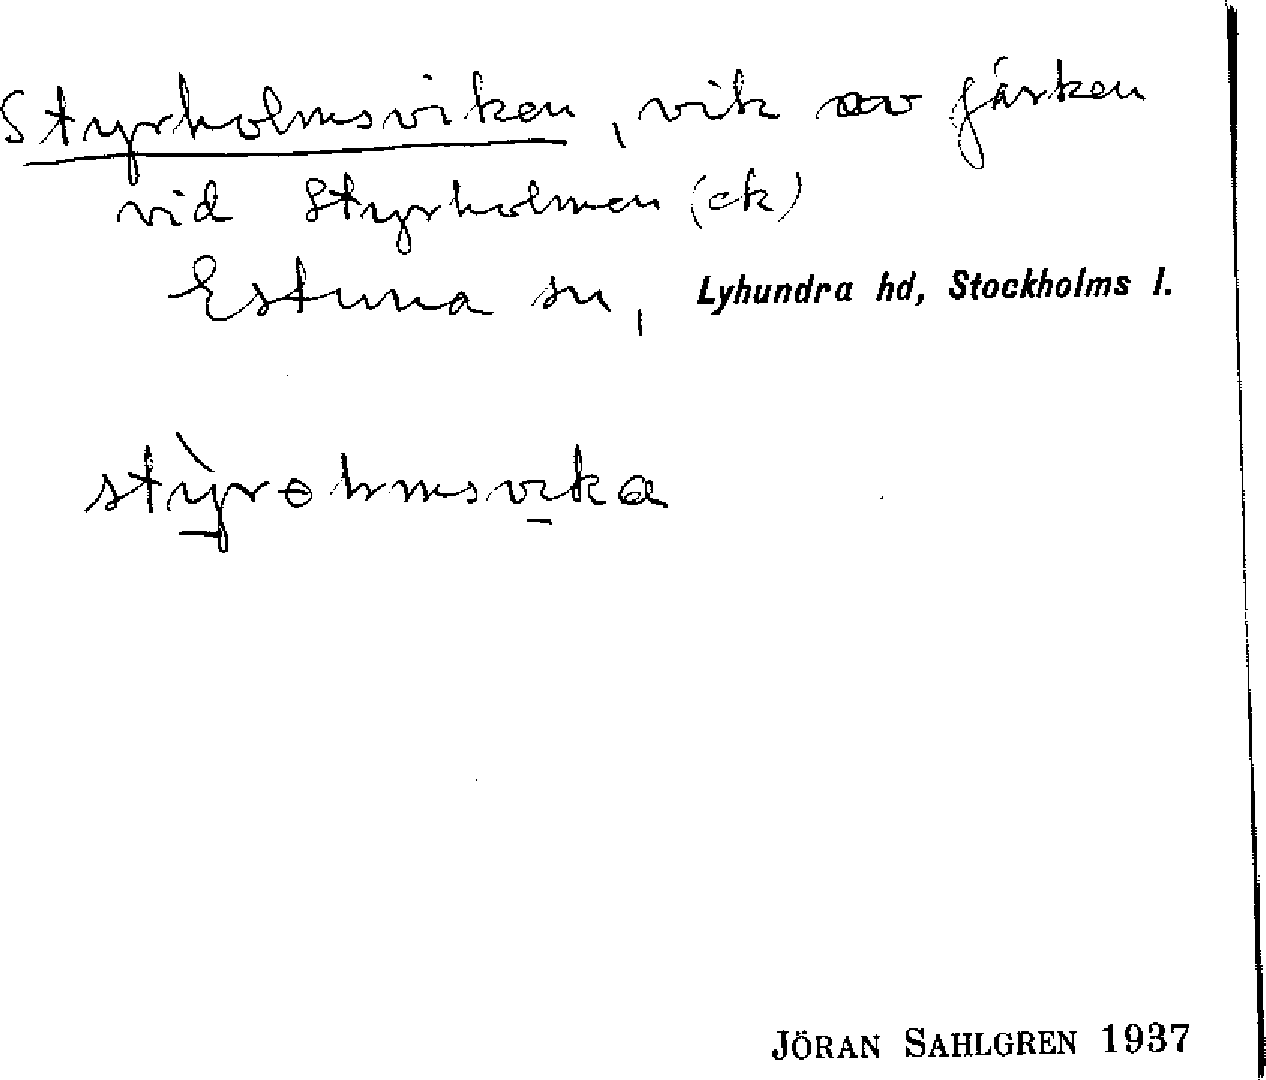 Styrholmsviken, vik av Gärken
vid Styrholmen (ek)
Estuna sn, Lyhundra hd, Stockholms l.
JÖRAN SAHLGREN 1937